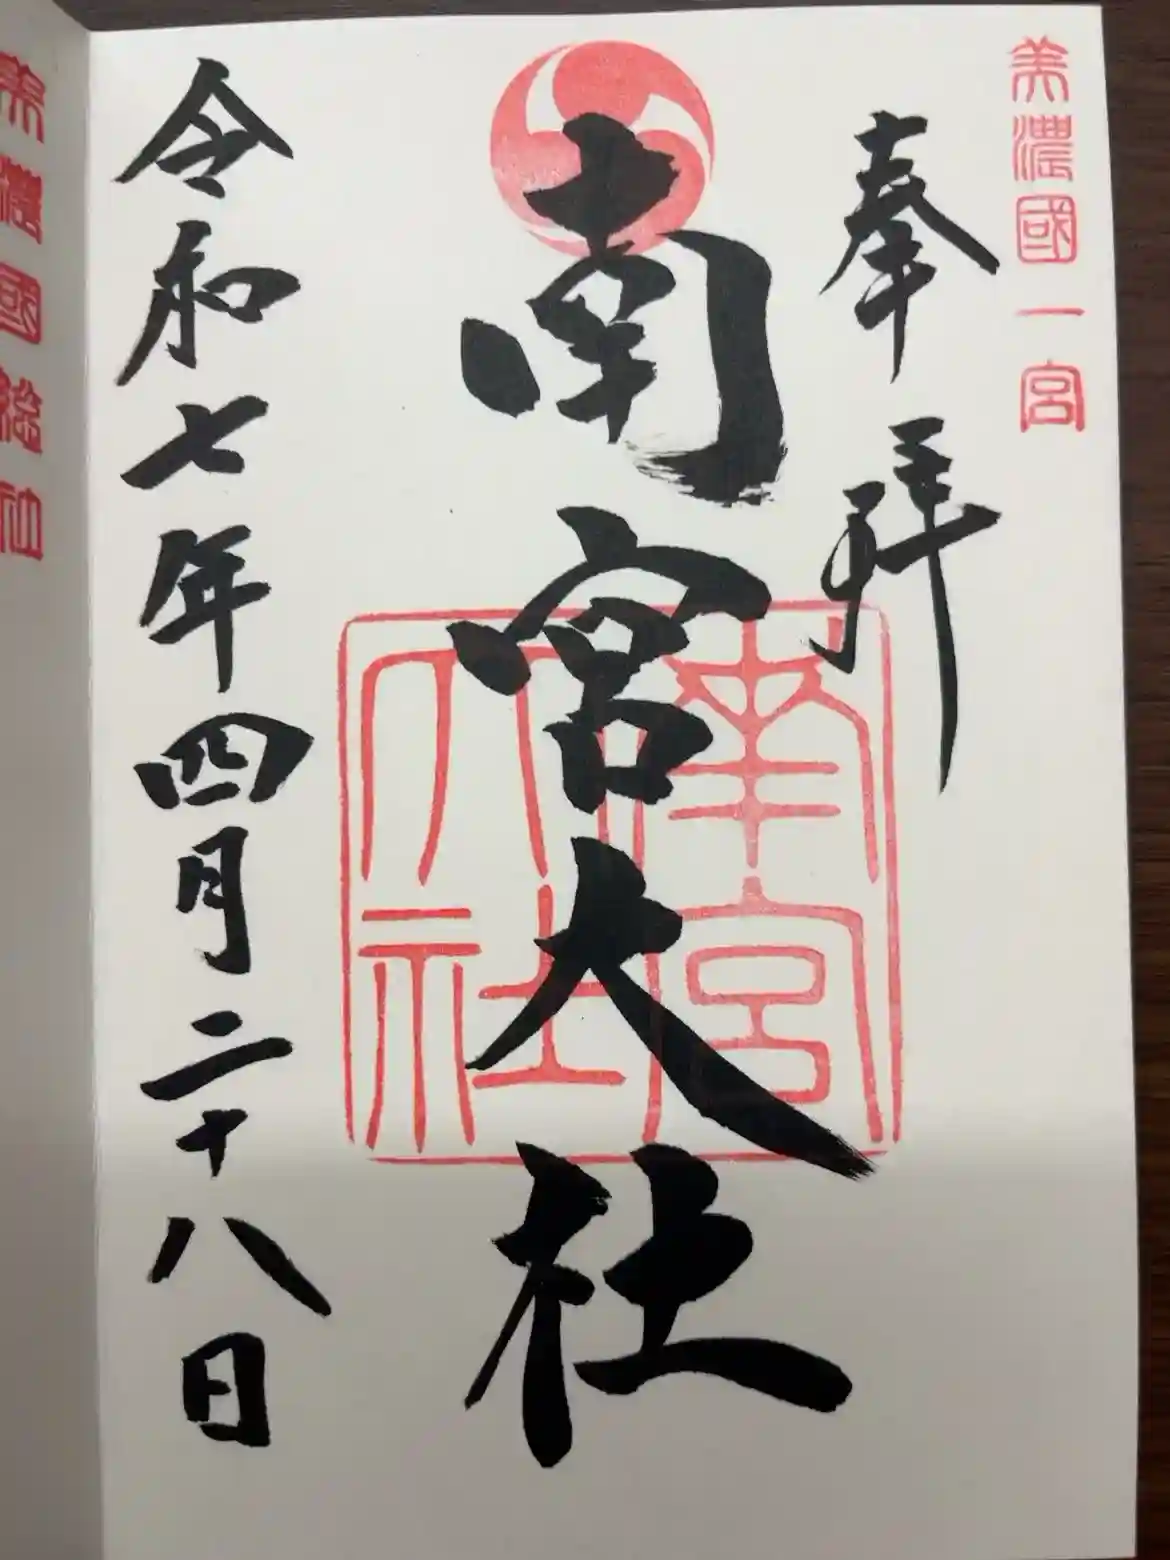 美濃國一宮
奉拝
南宮大社
南宮
大社
令和七年四月二十八日
美濃國総社